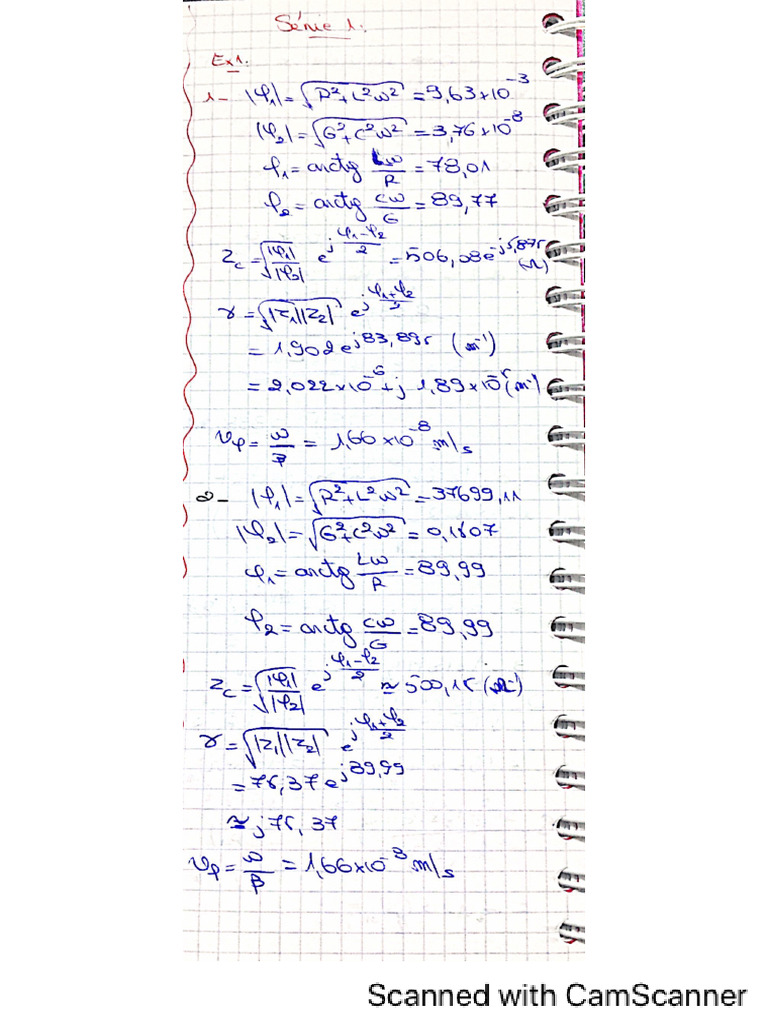 Série 1.
Ex1.
1- |φ₁| = √(R²+L²ω²) = 9,63×10⁻³
|φ₂| = √(G²+C²ω²) = 3,76×10⁻⁸
φ₁ = arctg Lω/R = 78,01
φ₂ = arctg Cω/G = 89,77
Z_c = √(|φ₁|/|φ₂|) e^(j(φ₁-φ₂)/2) = 506,08 e^(-j5,875) (Ω)
γ = √(|Z₁||Z₂|) e^(j(φ₁+φ₂)/2)
= 1,902 e^(j83,895) (m⁻¹)
= 2,022×10⁻⁶ + j 1,89×10⁻⁵ (m⁻¹)
v_φ = ω/β = 1,66×10⁻⁸ m/s
2- |φ₁| = √(R²+L²ω²) = 37699,11
|φ₂| = √(G²+C²ω²) = 0,1507
φ₁ = arctg Lω/R = 89,99
φ₂ = arctg Cω/G = 89,99
Z_c = √(|φ₁|/|φ₂|) e^(j(φ₁-φ₂)/2) ≈ 500,15
γ = √(|Z₁||Z₂|) e^(j(φ₁+φ₂)/2)
= 75,37 e^(j89,99)
≈ j75,37
v_φ = ω/β = 1,66×10⁻⁸ m/s
Scanned with CamScanner